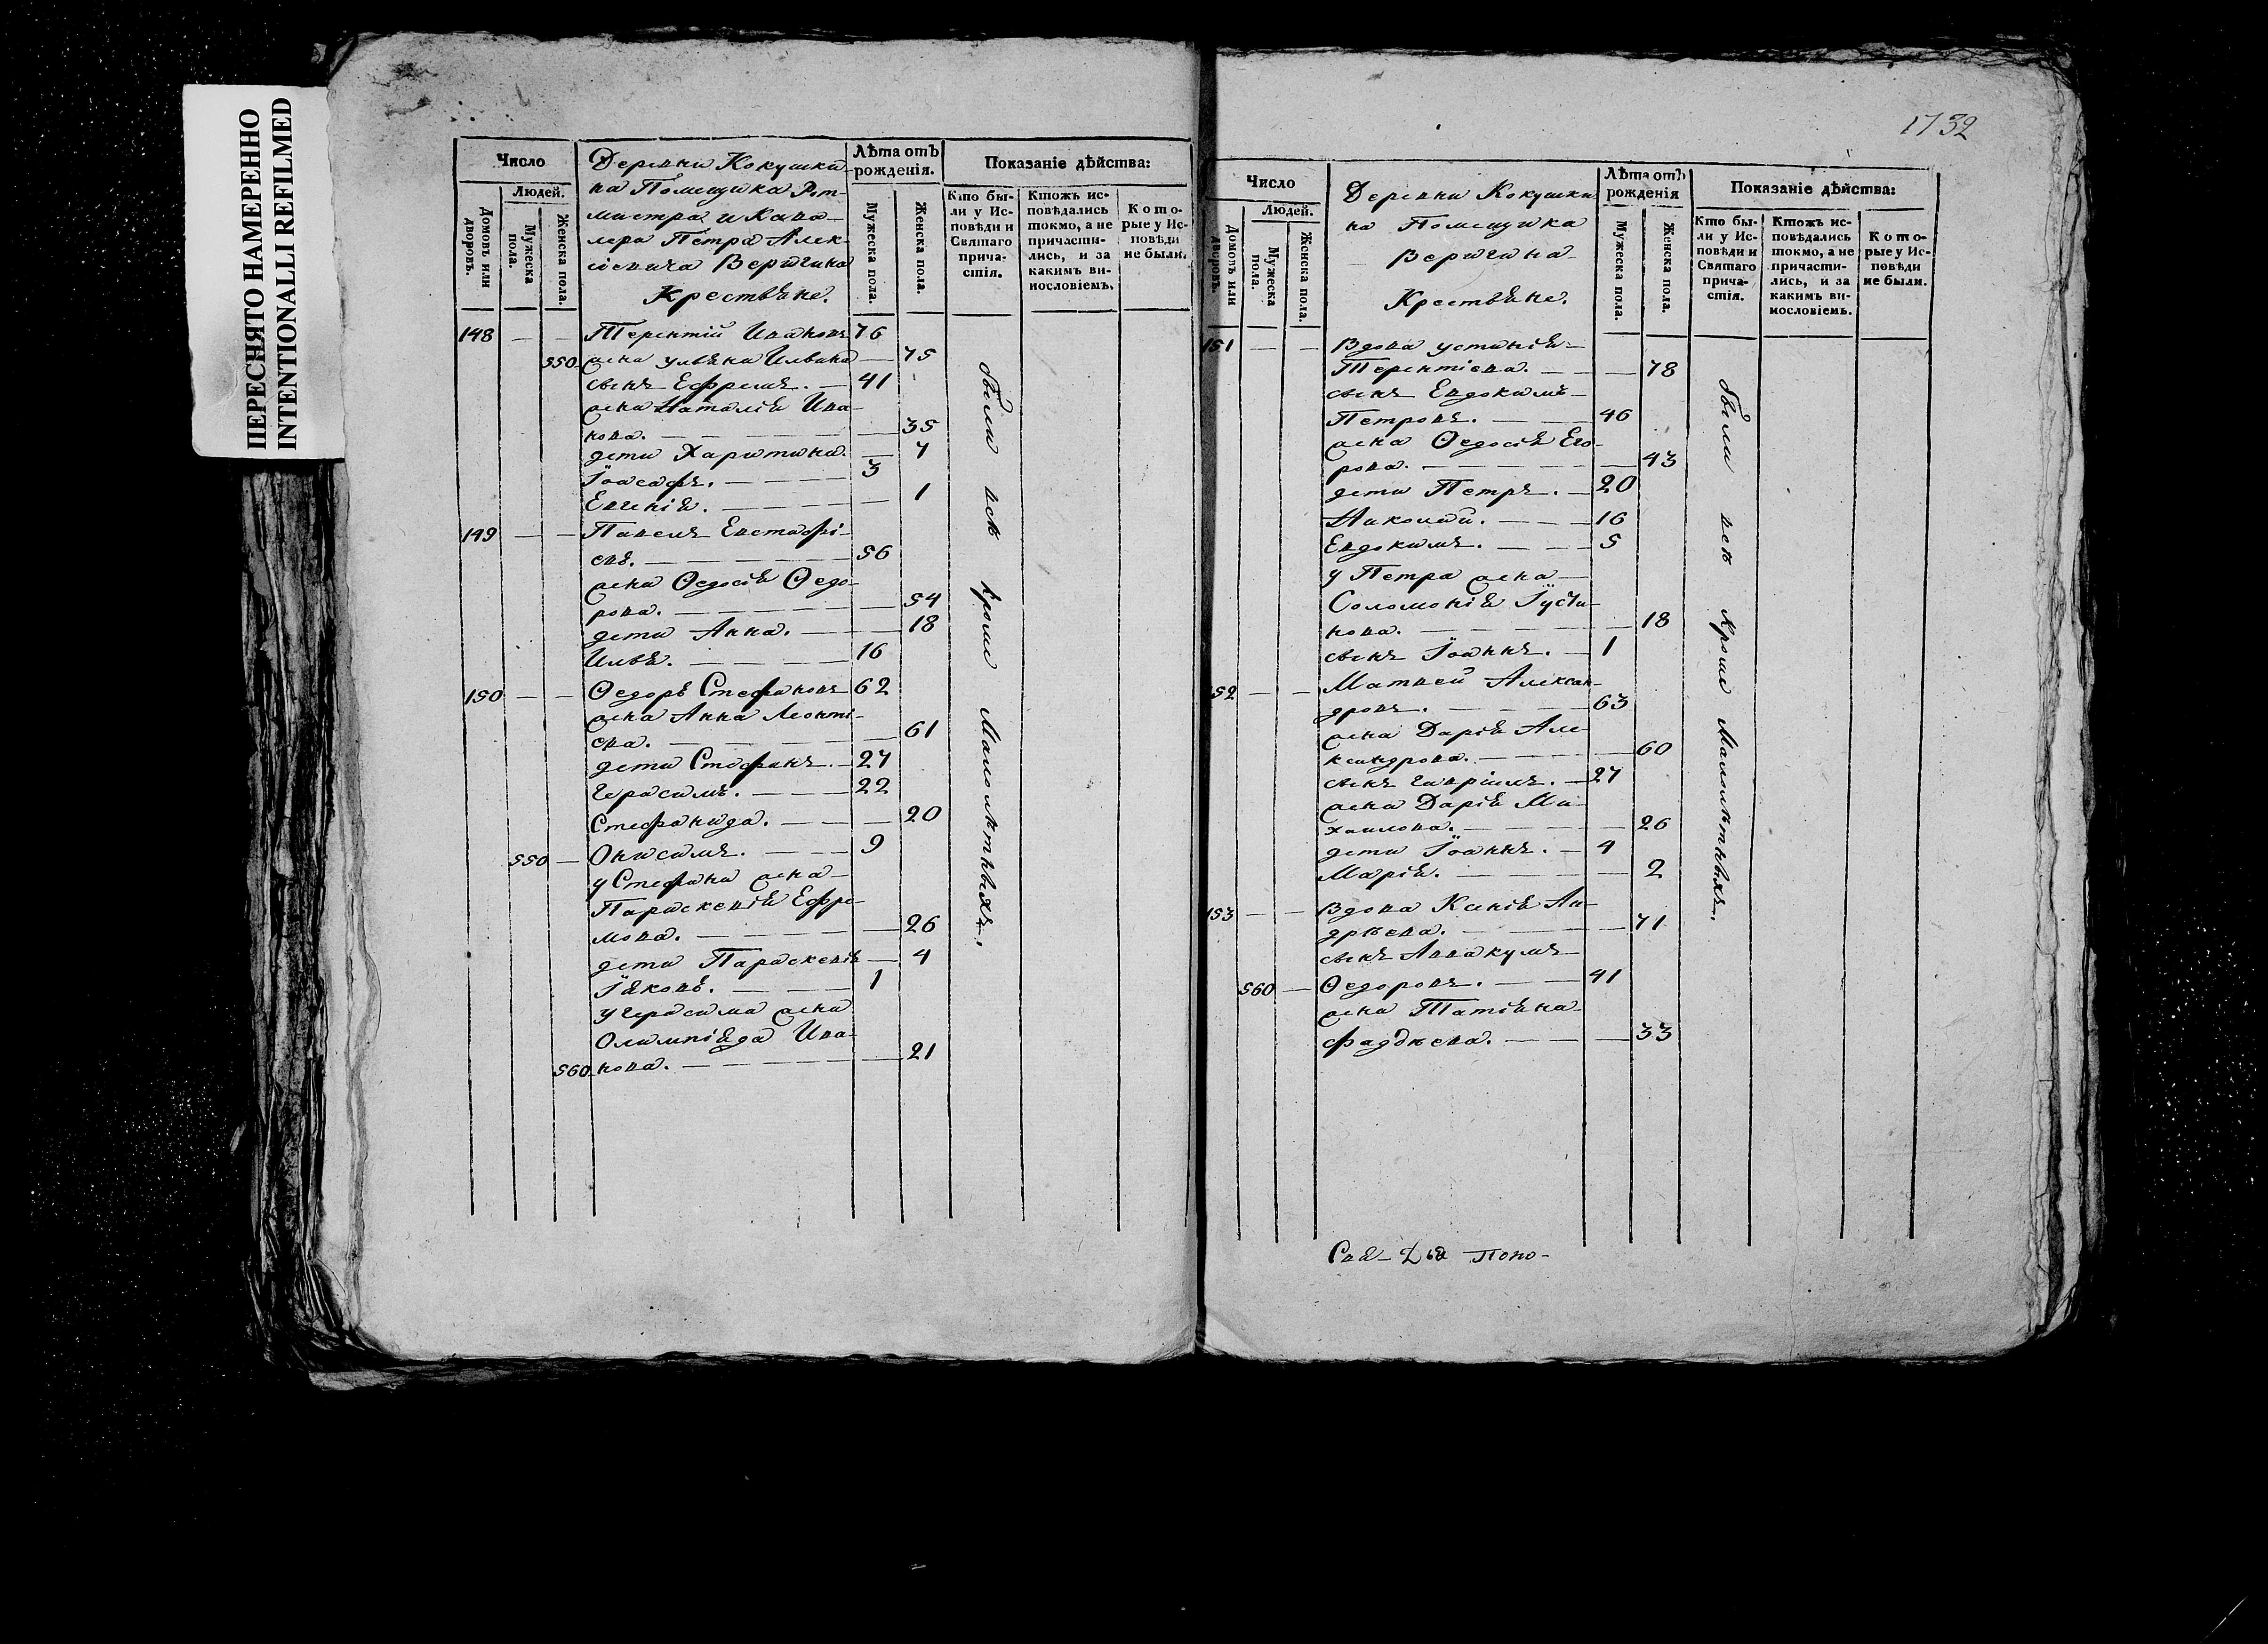 ПЕРЕСНЯТО НАМЕРЕННО
INTENTIONALLI REFILMED
Число
Людей.
Домовъ или дворовъ.
Мужеска пола.
Женска пола.
Деревни Кокушки-
на Помещика Рот-
мистра и Кава-
лера Петра Алек-
сіевича Веригина
Крестьяне.
Лѣта отъ рожденія.
Мужеска пола.
Женска пола.
Показаніе дѣйства:
Кто бы-
ли у Ис-
повѣди и
Святаго
прича-
стія.
Ктожъ ис-
повѣдались
токмо, а не
причасти-
лись, и за
какимъ ви-
нословіемъ.
Кото-
рые у Ис-
повѣди
не были.
148 — — Терентій Ивановъ 76
550 жена Ульяна Ильина — 75
сынъ Ефремъ. — 41
жена Наталія Ива-
нова. — — 35
дети Харитина. — 7
Іоасафъ. — 3
Евгенія. — — 1
149 — — Павелъ Евстафі-
евъ. — 56
жена Ѳедосія Ѳедо-
рова. — — 54
дети Анна. — — 18
Илья. — 16
150 — — Ѳедоръ Стефановъ 62
жена Анна Леонті-
ева. — — 61
дети Стефанъ. — 27
Герасимъ. — 22
Стефанида. — — 20
550 — Онисимъ. — 9
у Стефана жена —
Параскевія Ефре-
мова. — — 26
дети Параскевія — 4
Іяковъ. — 1
у Герасима жена
Олимпіяда Ива-
560 нова. — — 21
были всѣ кроме Малолѣтныхъ.
1732
Число
Людей.
Домовъ или дворовъ.
Мужеска пола.
Женска пола.
Деревни Кокушки
на Помещика
Веригина
Крестьяне.
Лѣта отъ рожденія
Мужеска пола.
Женска пола.
Показаніе дѣйства:
Кто бы-
ли у Ис-
повѣди и
Святаго
прича-
стія.
Ктожъ ис-
повѣдались
токмо, а не
причасти-
лись, и за
какимъ ви-
нословіемъ.
Кото-
рые у Ис-
повѣди
не были.
151 — — Вдова Устинія
Терентіева. — — 78
сынъ Евдокимъ
Петровъ. — 46
жена Ѳедосія Его-
рова. — — 43
дети Петръ. — 20
Николай. — 16
Евдокимъ. — 5
у Петра жена —
Соломонія Іусти-
нова. — — 18
сынъ Іоаннъ. — 1
152 — — Матвей Алексан-
дровъ. — 63
жена Дарія Але-
ксандрова. — — 60
сынъ Гавріилъ. — 27
жена Дарія Ми-
хаилова. — — 26
дети Іоаннъ. — 4
Марія. — — 2
153 — — Вдова Ксенія Ан-
дрѣева. — — 71
сынъ Аввакумъ
560 — Ѳедоровъ. — 41
жена Татіяна
Фаддѣева. — — 33
были всѣ Кроме Малолѣтныхъ.